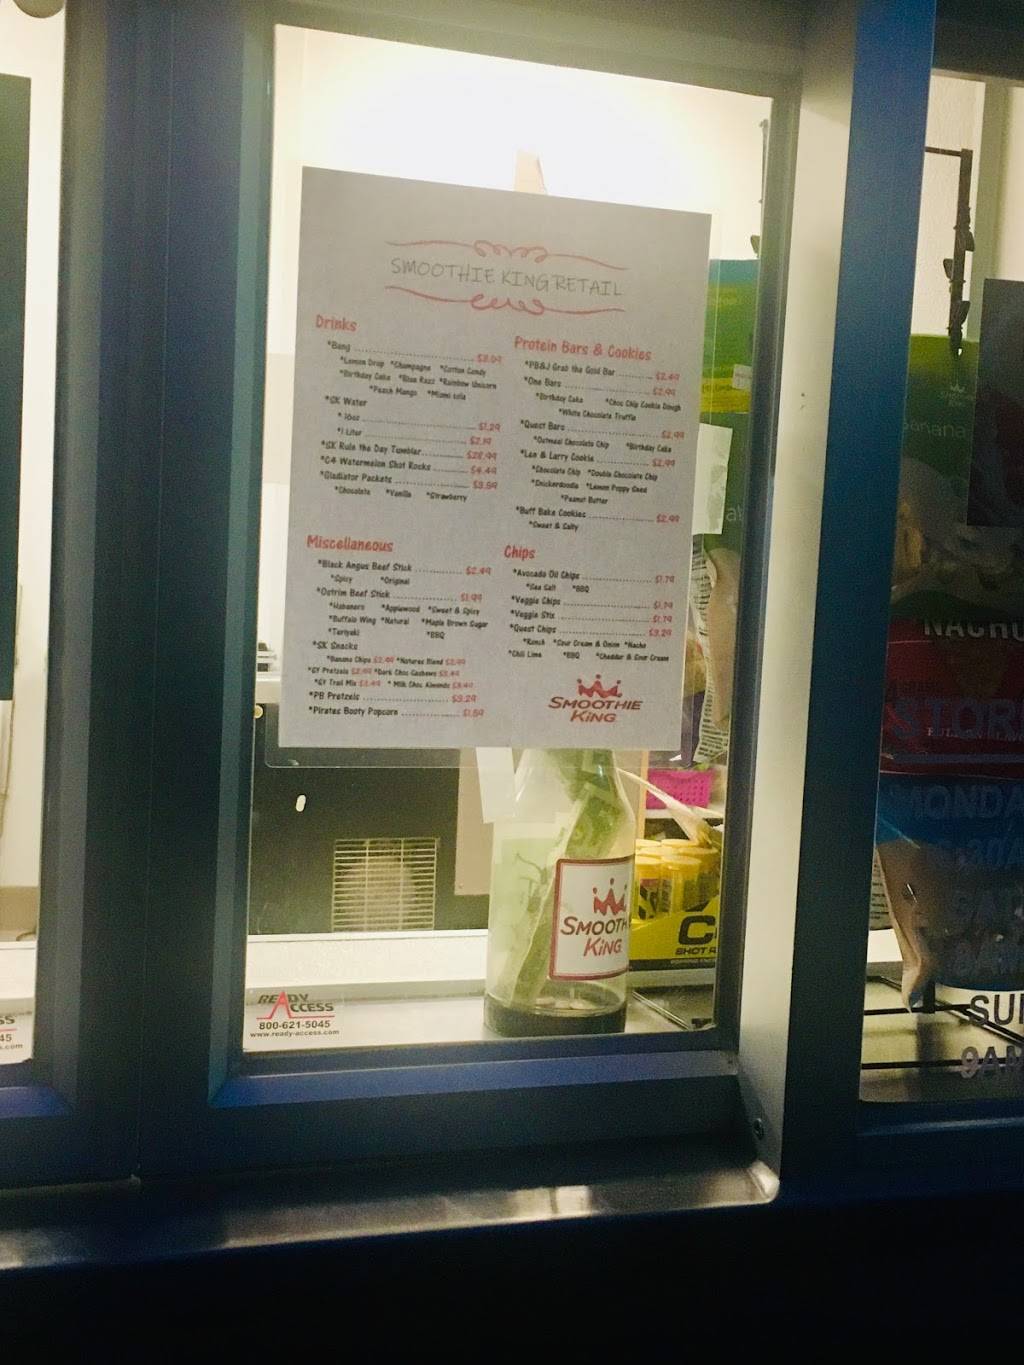 SMOOTHIE KING RETAIL
Drinks
*Bang
*Lemon Drop *Champagne *Cotton Candy
*Birthday Cake *Blue Razz *Rainbow Unicorn
*Peach Mango *Miami cola
*SK Water
*16oz $1.29
*1 Liter $2.19
*SK Rule the Day Tumbler $28.99
*C4 Watermelon Shot Rocks $4.49
*Gladiator Packets $3.59
*Chocolate *Vanilla *Strawberry
Miscellaneous
*Black Angus Beef Stick $2.49
*Spicy *Original
*Ostrim Beef Stick $1.99
*Habanero *Applewood *Sweet & Spicy
*Buffalo Wing *Natural *Maple Brown Sugar
*Teriyaki *BBQ
*SK Snacks
*Banana Chips $2.49 *Natures Blend $2.99
*GY Pretzels $2.99 *Dark Choc Cashews $3.49
*GY Trail Mix $3.49 *Milk Choc Almonds $3.49
*PB Pretzels $3.29
*Pirates Booty Popcorn $1.59
Protein Bars & Cookies
*PB&J Grab the Gold Bar $2.49
*One Bars $2.99
*Birthday Cake *Choc Chip Cookie Dough
*White Chocolate Truffle
*Quest Bars $2.99
*Oatmeal Chocolate Chip *Birthday Cake
*Len & Larry Cookie $2.99
*Chocolate Chip *Double Chocolate Chip
*Snickerdoodle *Lemon Poppy Seed
*Peanut Butter
*Buff Bake Cookies $2.99
*Sweet & Salty
Chips
*Avocado Oil Chips $1.79
*Sea Salt *BBQ
*Veggie Chips $1.79
*Veggie Stix $1.79
*Quest Chips $3.29
*Ranch *Sour Cream & Onion *Nacho
*Chili Lime *BBQ *Cheddar & Sour Cream
SMOOTHIE
KING
SMOOTH
KING
SHOT R
READY
ACCESS
800-621-5045
www.ready-access.com
anana
NACHO
STOR
MONDA
SU
9AM